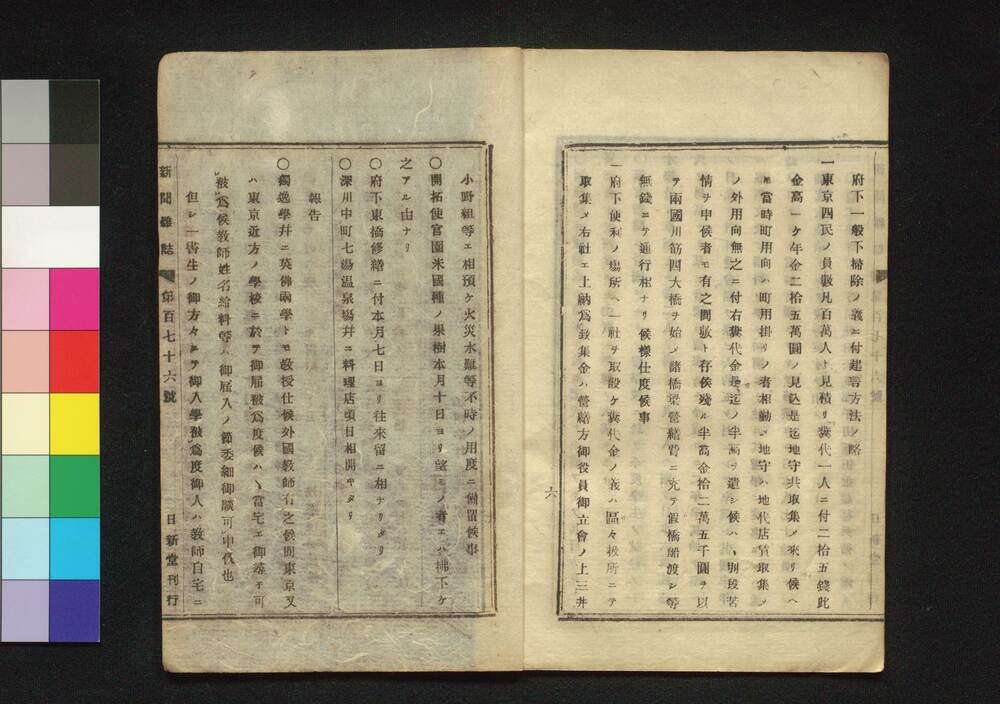 府下一般下掃除ノ義ニ付起善方法ノ略
一東京四民ノ員數凡百萬人ト見積リ糞代一人ニ付二拾五錢此
金高一ケ年金二拾五萬圓ノ見込是迄地守共取集メ來リ候ヘ
𪜈當時町用向ハ町用掛リノ者相勤メ地守ハ地代店賃取集メ
ノ外用向無之ニ付右糞代金是迄ノ半高ヲ遣シ候ハヽ別段苦
情ヲ申候者モ有之間敷ト存候殘ル半高金拾二萬五千圓ヲ以
テ兩國川筋四大橋ヲ始メ諸橋梁營繕費ニ充テ假橋船渡シ等
無錢ニテ通行相ナリ候樣仕度候事
一府下便利ノ場所ヘ一社ヲ取設ケ糞代金ノ義ハ區々扱所ニテ
取集メ右社エ上納爲致集金ハ營繕方御役員御立會ノ上三井
六
小野組等エ相預ケ火災水難等不時ノ用度ニ備置候事
〇開拓使官園米國種ノ果樹本月十日ヨリ望ミノ者エハ拂下ケ
之アル由ナリ
〇府下東橋修繕ニ付本月七日ヨリ往來留ニ相ナリタリ
〇深川中町七湯温泉場幷ニ料理店頃日相開キタリ
報告
〇獨逸學幷ニ英佛兩學トモ敎授仕候外國敎師有之候間東京又
ハ東京近方ノ學校ニ於テ御雇被爲度候ハヽ當宅エ御尋子可
被爲候敎師姓名給料等ハ御雇入ノ節委細御談可申候也
但シ一書生ノ御方々ニテ御入學被爲度御人ハ敎師自宅ニ
新聞雜誌　第百七十六號　日新堂刊行